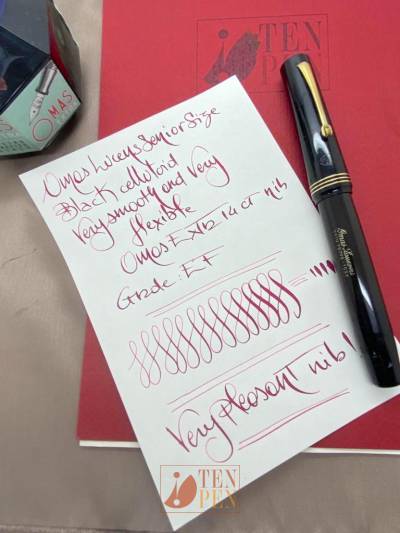 TEN
PEN
OMAS
Omas Lucens Senior Size
Black celluloid
Very smooth and Very
flexible
Omas Extra 14 cr nib
Grade: EF
Very pleasant nib!
TEN
PEN